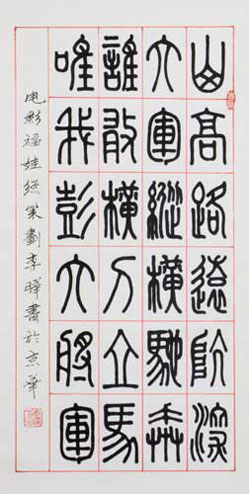 山高路遠阬深
大軍縱橫馳奔
誰敢橫刀立馬
唯我彭大將軍
电影福娃總策劃李書於京華